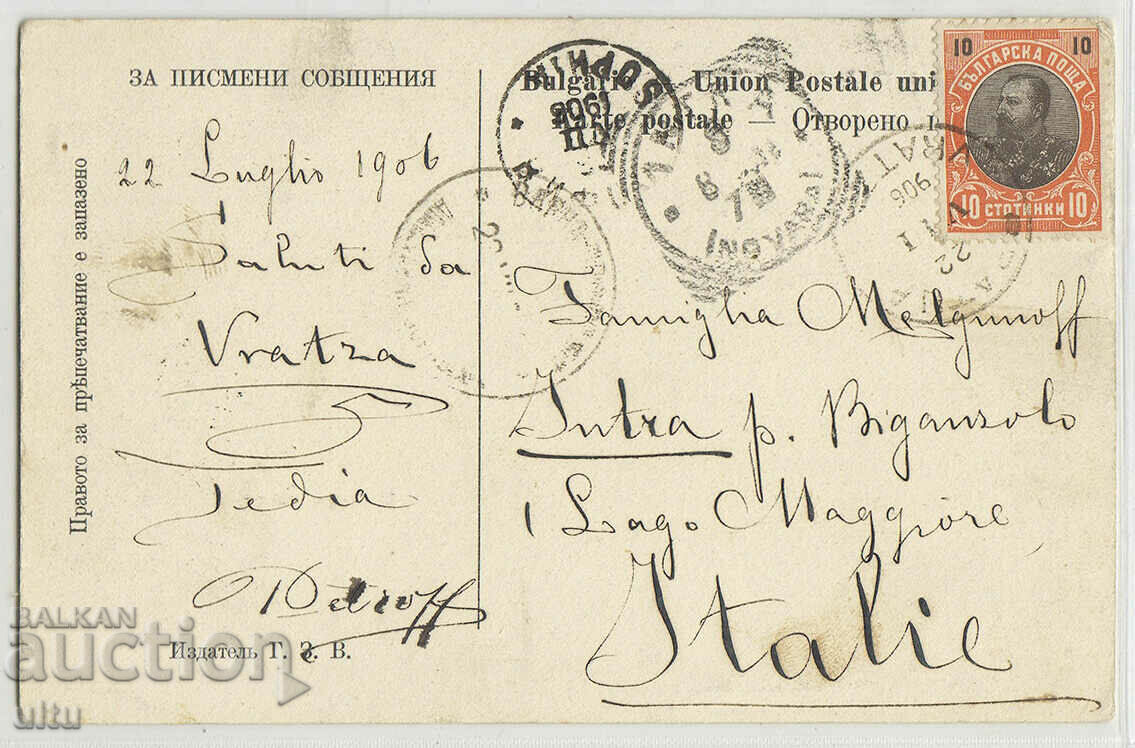 ЗА ПИСМЕНИ СОБЩЕНИЯ
Правото за прѣпечатване е запазено
22 Luglio 1906
Saluti da
Vratza
Fedia
Petroff
Издатель Г. З. В.
Bulgarie Union Postale uni
Carte postale — Отворено п
БЪЛГАРСКА ПОЩА
10 10
10 СТОТИНКИ 10
SOPHIA
1906
VII
VRATZA
22 VII 906
Famiglia Melgunoff
Intra p. Biganzolo
Lago Maggiore
Italie
BALKAN
auction
ultu